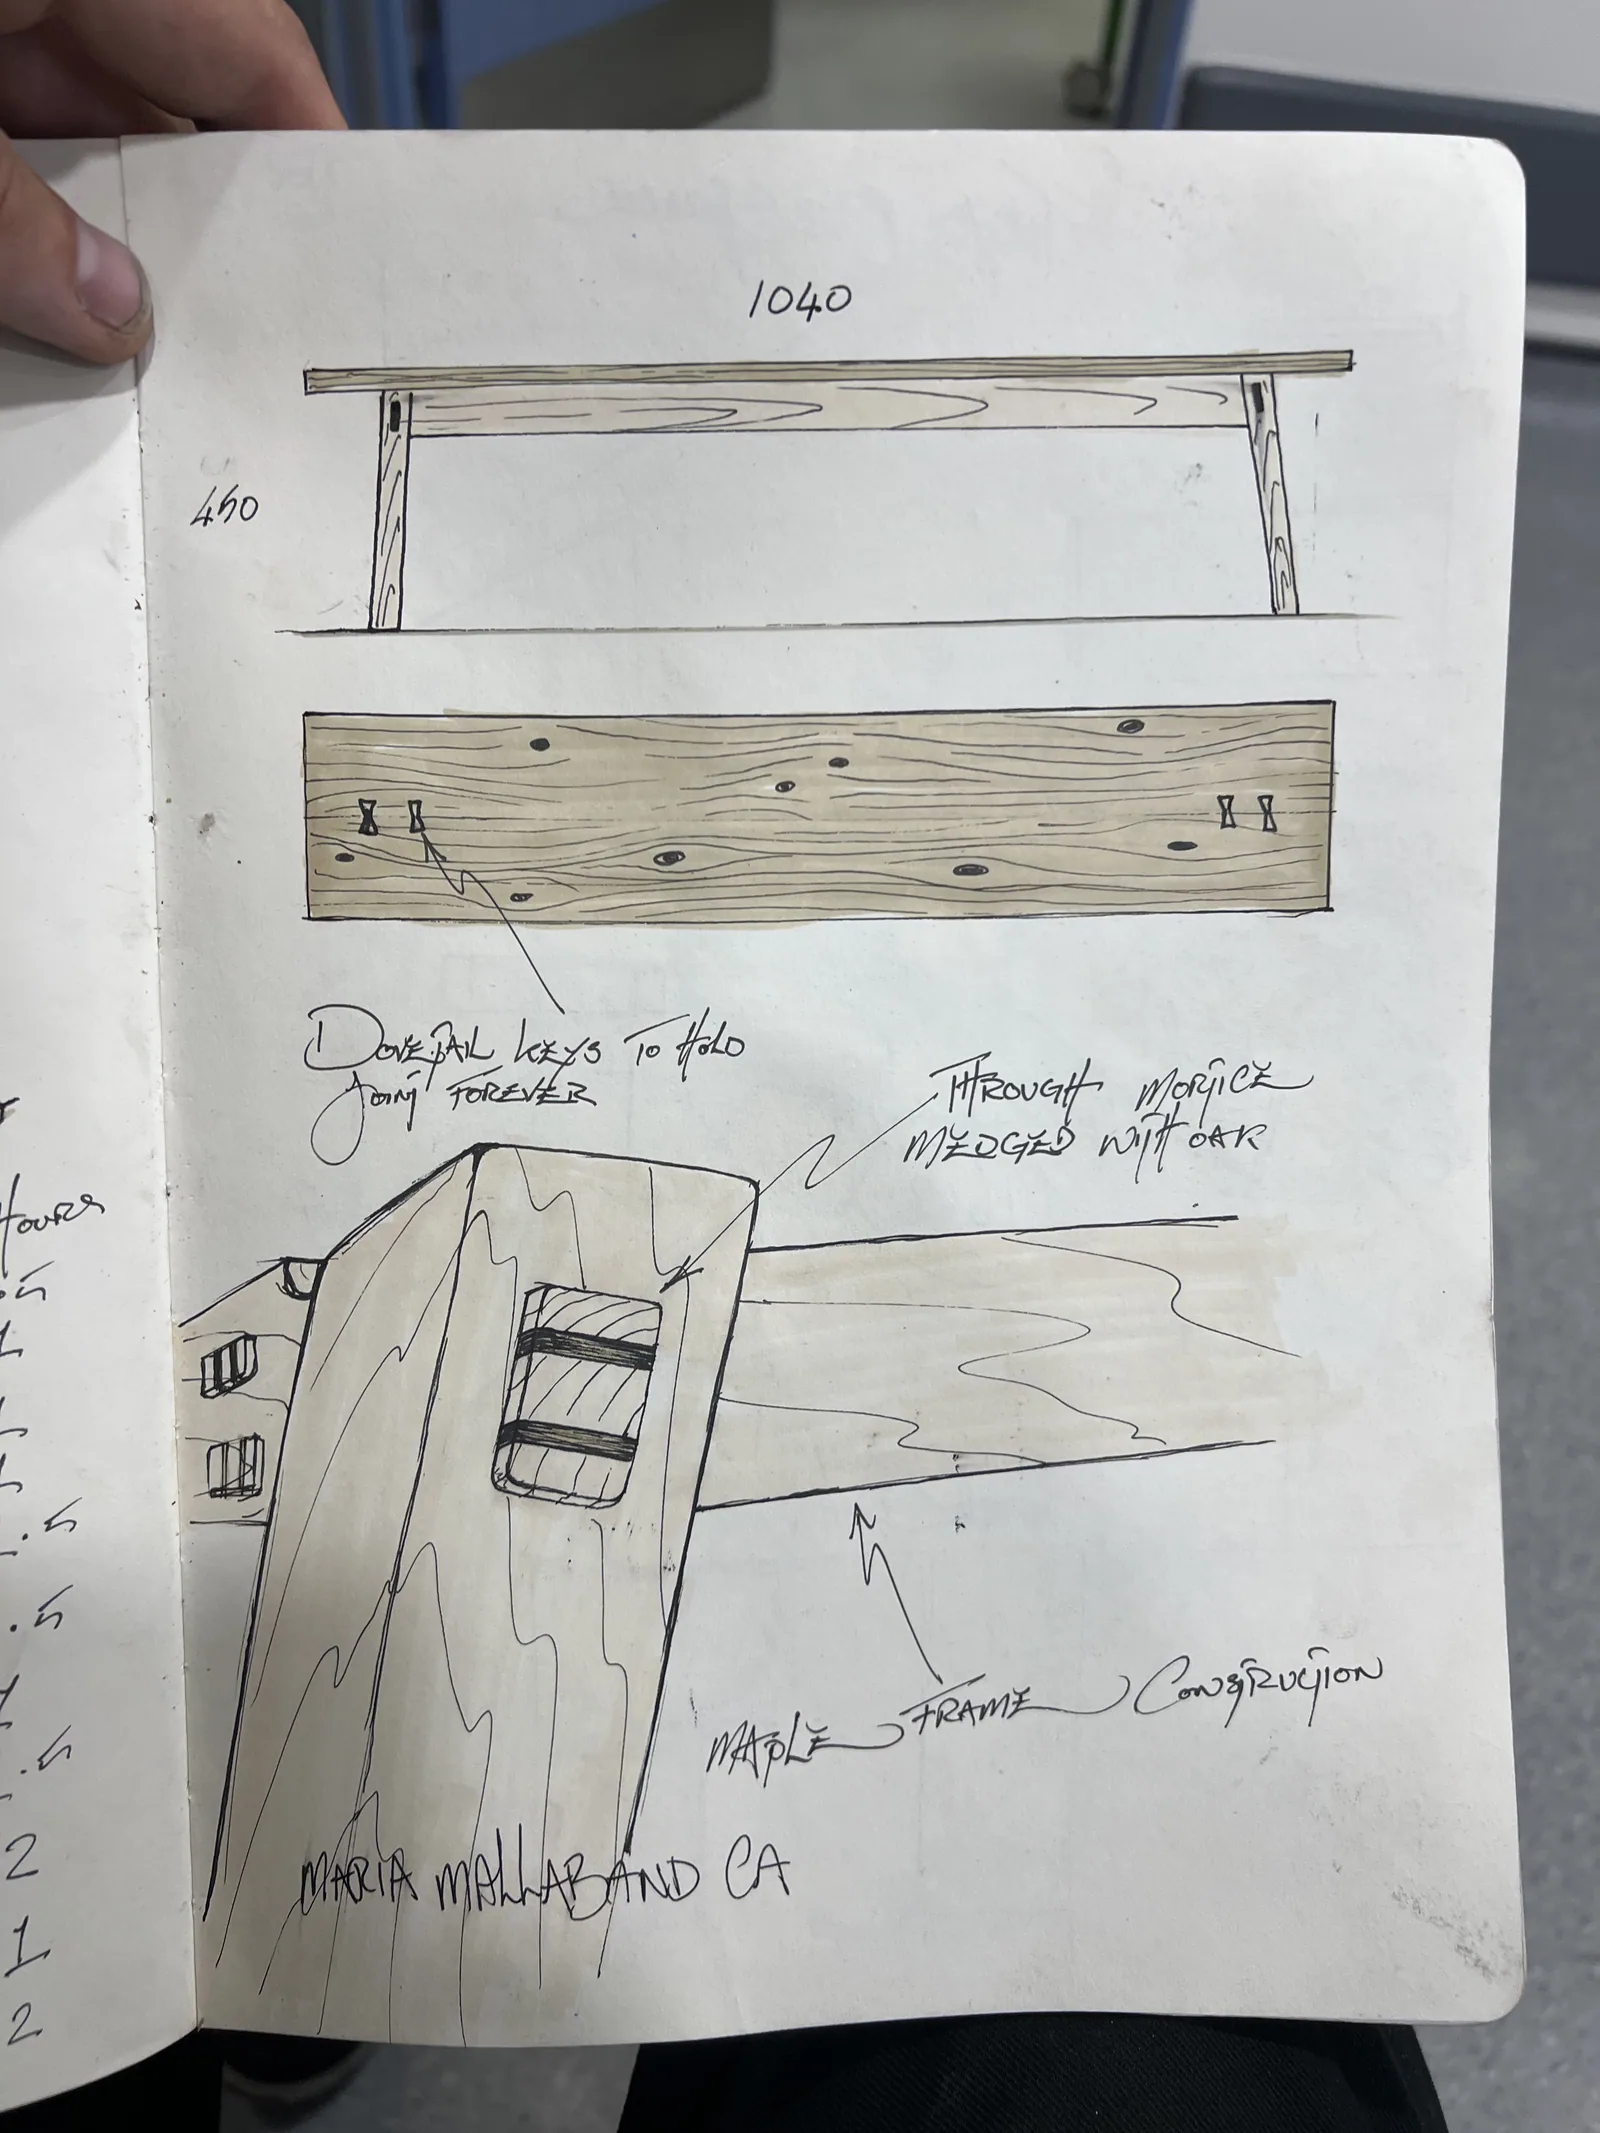 HOURS
.5
1
1
1
.5
.5
.5
2
1
2
1040
450
DOVETAIL KEYS TO HOLD
JOINT FOREVER
THROUGH MORTICE
MEDGED WITH OAK
MAPLE FRAME CONSTRUCTION
MARIA MALLABAND CA